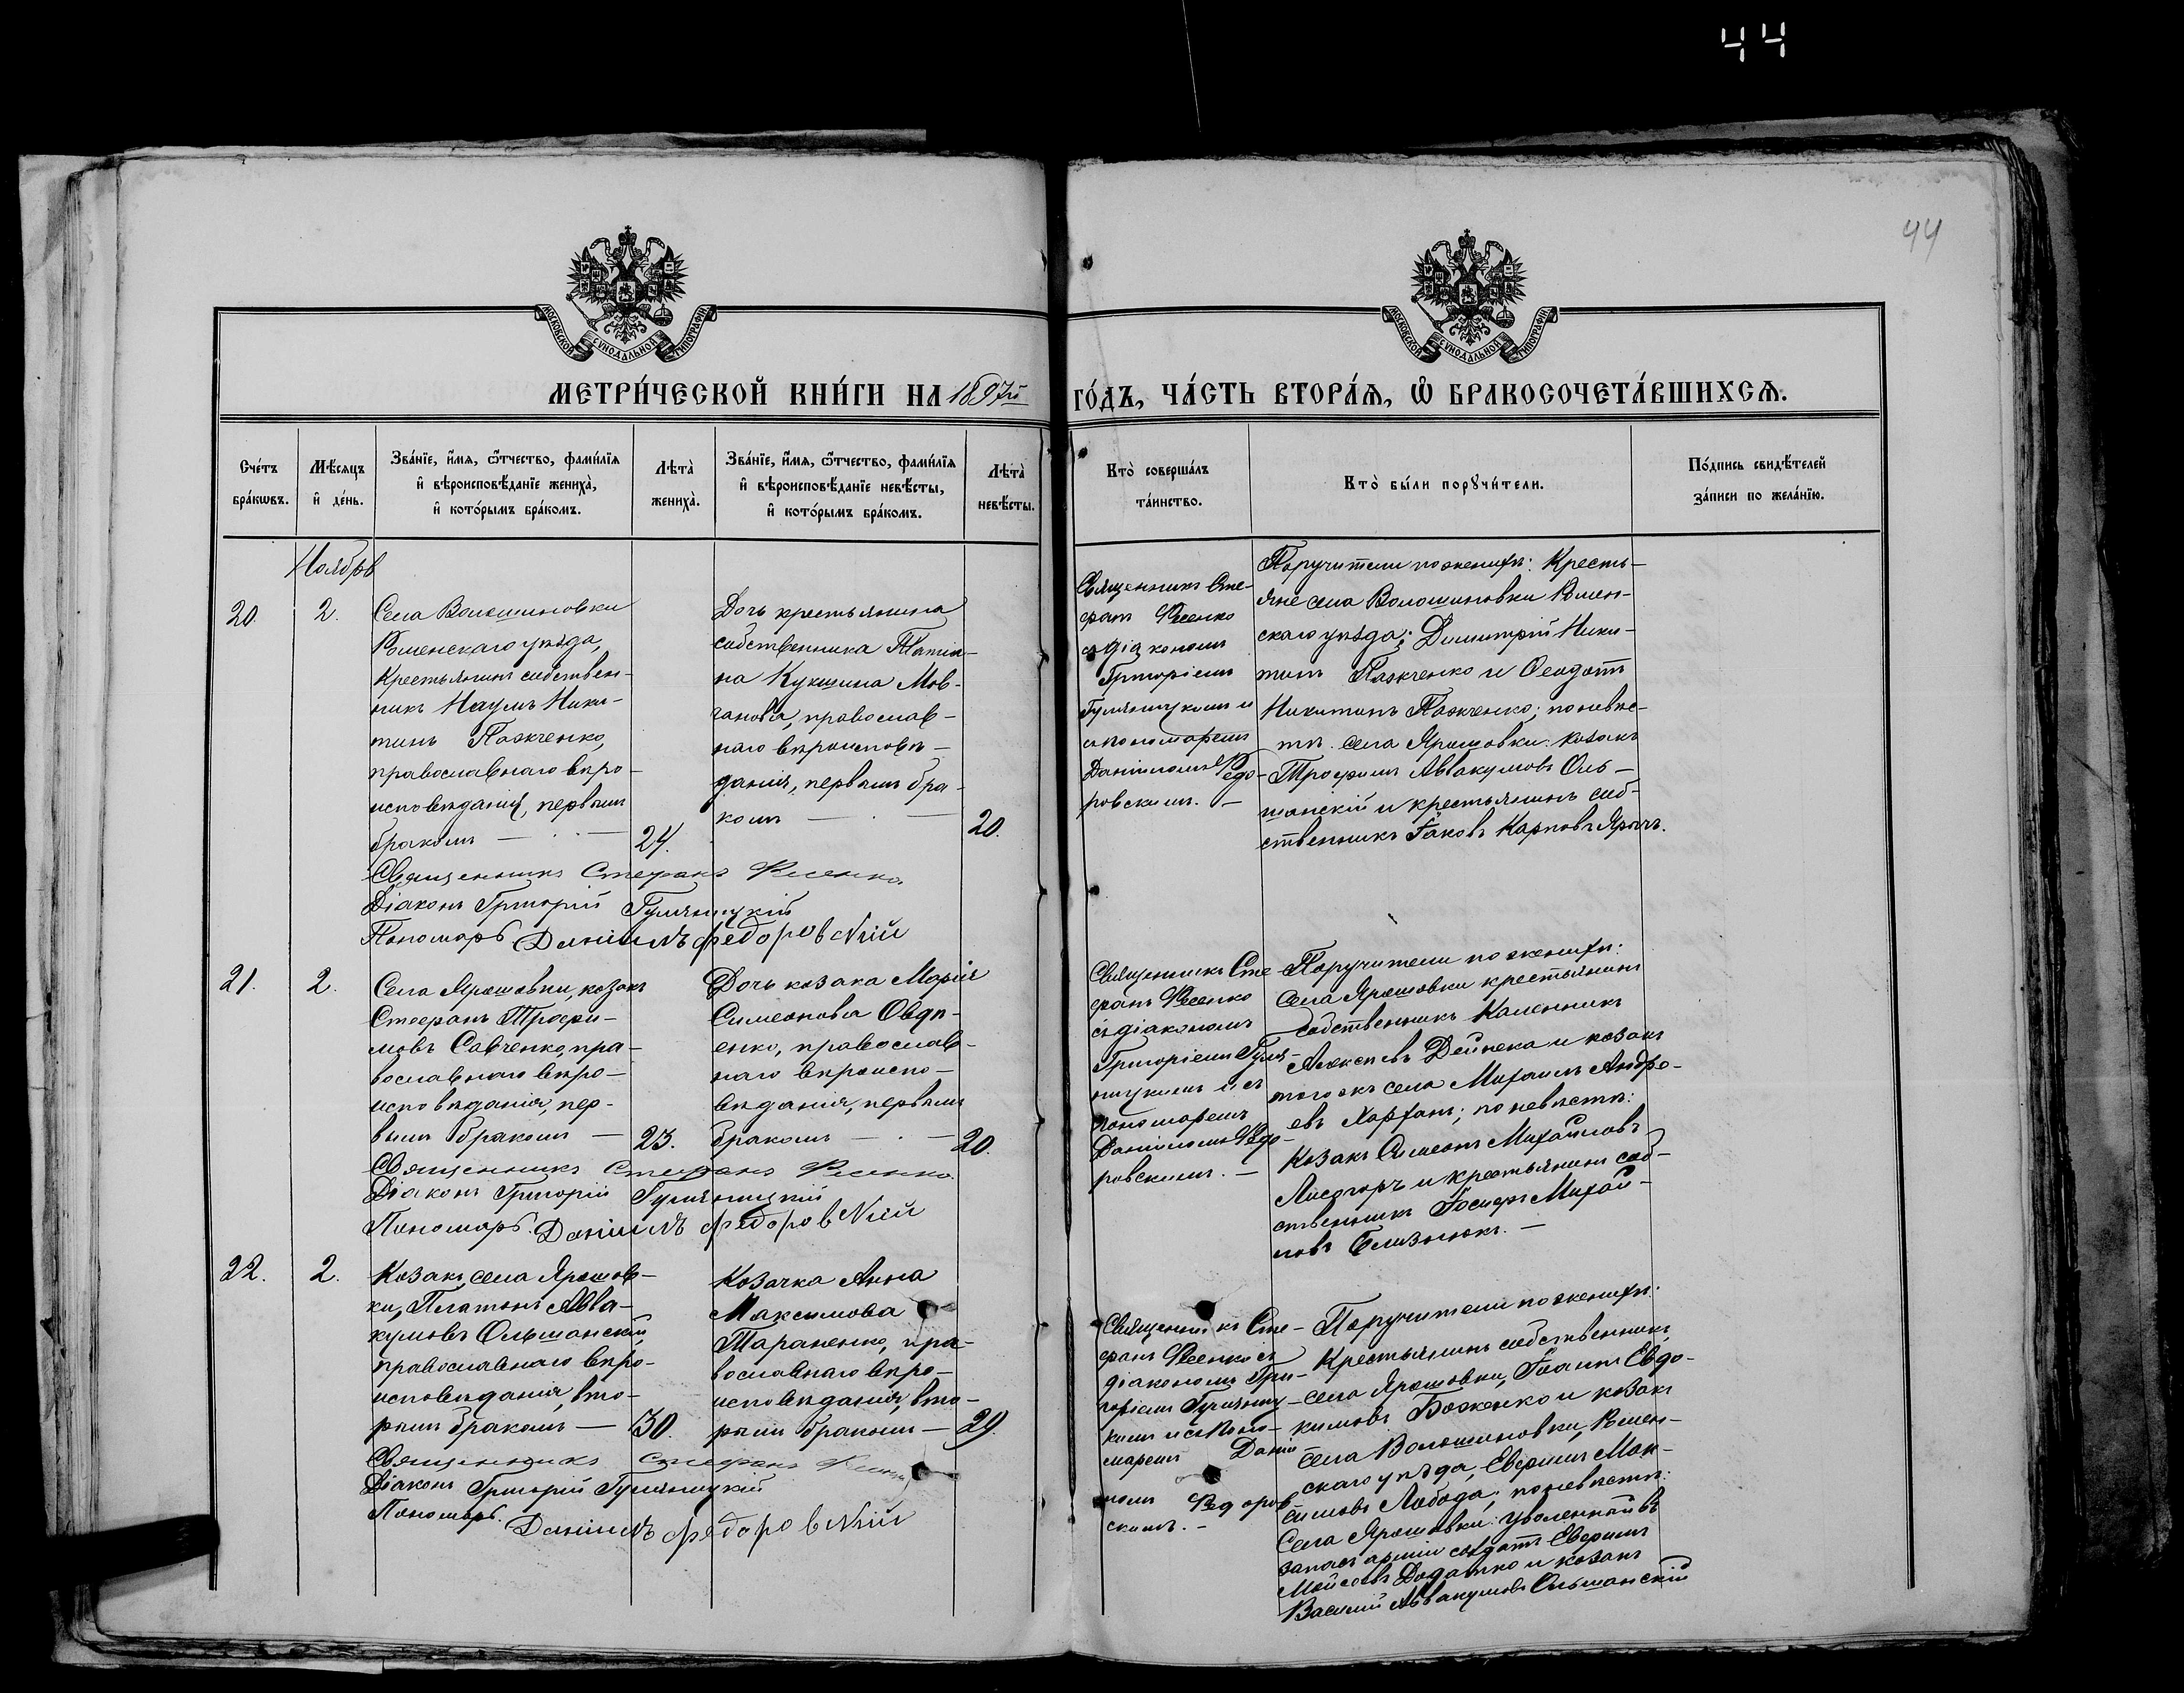 44
44
МОСКОВСКОЙ СѴНОДАЛЬНОЙ ТИПОГРАФІИ
МОСКОВСКОЙ СѴНОДАЛЬНОЙ ТИПОГРАФІИ
МЕТРИ́ЧЕСКОЙ КНИ́ГИ НА 1897й ГО́ДЪ, ЧА́СТЬ ВТОРА́Ѧ, Ѡ҆ БРАКОСОЧЕТА́ВШИХСѦ.
Сче́тъ
бра́кѡвъ.
Мѣ́сяцъ
и҆ де́нь.
Зва́нїе, и҆́мѧ, ѻ҆́тчество, фами́лїѧ
и҆ вѣроисповѣ́данїе жениха̀,
и҆ кото́рымъ бра́комъ.
Лѣта̀
жениха̀.
Зва́нїе, и҆́мѧ, ѻ҆́тчество, фами́лїѧ
и҆ вѣроисповѣ́данїе невѣ́сты,
и҆ кото́рымъ бра́комъ.
Лѣта̀
невѣ́сты.
Кто̀ соверша́лъ
та́инство.
Кто̀ бы́ли порꙋчи́тели.
По́дпись свидѣ́телей
за́писи по жела́нїю.
Ноябрь
20.
2.
Села Волошиновки
Роменскаго уѣзда,
крестьянинъ собствен-
никъ Наумъ Ники-
тинъ Пажченко,
православнаго вѣро-
исповѣданія, первымъ
бракомъ
24.
Дочь крестьянина
собственника Татія-
на Кукшина Мов-
чанова, православ-
наго вѣроисповѣ-
данія, первымъ бра-
комъ
20.
Священникъ Сте-
фанъ Фесенко
съ діакономъ
Григоріемъ
Гуляницкимъ и
съ пономаремъ
Даніиломъ Ѳедо-
ровскимъ.
Поручители по женихѣ: Кресть-
яне села Волошиновки Ромен-
скаго уѣзда: Димитрій Ники-
тинъ Пажченко и Ѳеодотъ
Никитинъ Пажченко; по невѣс-
тѣ: села Ярошовки: козакъ
Трофимъ Аввакумовъ Оль-
шанскій и крестьянинъ соб-
ственникъ Іаковъ Карповъ Ярычъ.
Священникъ Стефанъ Фесенко
Діаконъ Григорій Гуляницкій
Пономарь Даніилъ Федоровскій
21.
2.
Села Ярошовки, козакъ
Стефанъ Трофи-
мовъ Савченко, пра-
вославнаго вѣро-
исповѣданія, пер-
вымъ бракомъ
23.
Дочь козака Марія
Симеонова Овдѣ-
енко, православ-
наго вѣроиспо-
вѣданія, первымъ
бракомъ
20.
Священникъ Сте-
фанъ Фесенко
съ діакономъ
Григоріемъ Гуля-
ницкимъ и съ
пономаремъ
Даніиломъ Ѳедо-
ровскимъ.
Поручители по женихѣ:
села Ярошовки крестьянинъ
собственникъ Каленникъ
Алексѣевъ Дейнека и козакъ
того жъ села Михаилъ Андре-
евъ Харханъ; по невѣстѣ:
козакъ Симеонъ Михайловъ
Лисогоръ и крестьянинъ соб-
ственникъ Іосифъ Михай-
ловъ Близнюкъ.
Священникъ Стефанъ Фесенко
Діаконъ Григорій Гуляницкій
Пономарь Даніилъ Федоровскій
22.
2.
Козакъ села Ярошов-
ки, Платонъ Авва-
кумовъ Ольшанскій,
православнаго вѣро-
исповѣданія, вто-
рымъ бракомъ
30.
Козачка Анна
Максимова
Тараненко, пра-
вославнаго вѣро-
исповѣданія, вто-
рымъ бракомъ
29.
Священникъ Сте-
фанъ Фесенко съ
діакономъ Гри-
горіемъ Гуляниц-
кимъ и съ поно-
маремъ Даніи-
ломъ Ѳедоров-
скимъ.
Поручители по женихѣ:
крестьянинъ собственникъ
села Ярошовки, Іоаннъ Евдо-
кимовъ Боженко и козакъ
села Волошиновки, Ромен-
скаго уѣзда, Евфимъ Мак-
симовъ Лобода; по невѣстѣ:
села Ярошовки: уволенный въ
запасъ арміи солдатъ Евфимъ
Мойсеевъ Додатко и козакъ
Василій Аввакумовъ Ольшанскій
Священникъ Стефанъ Фесенко
Діаконъ Григорій Гуляницкій
Пономарь Даніилъ Федоровскій